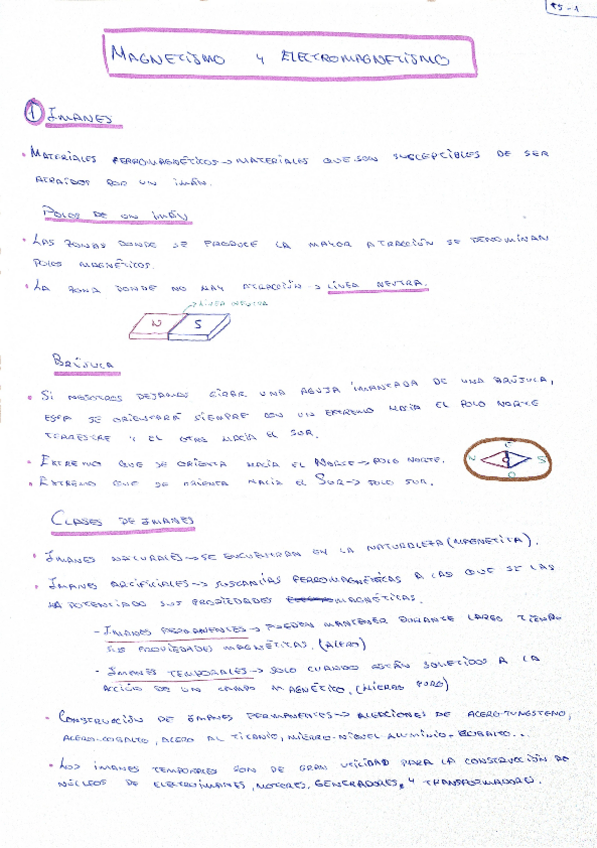 T5-1
MAGNETISMO Y ELECTROMAGNETISMO
1 IMANES
• MATERIALES FERROMAGNÉTICOS → MATERIALES QUE SON SUSCEPTIBLES DE SER
ATRAÍDOS POR UN IMÁN.
POLOS DE UN IMÁN
• LAS ZONAS DONDE SE PRODUCE LA MAYOR ATRACCIÓN SE DENOMINAN
POLOS MAGNÉTICOS.
• LA ZONA DONDE NO HAY ATRACCIÓN → LÍNEA NEUTRA.
→ LÍNEA NEUTRA
N S
BRÚJULA
• SI NOSOTROS DEJAMOS GIRAR UNA AGUJA IMANTADA DE UNA BRÚJULA,
ESTA SE ORIENTARÁ SIEMPRE CON UN EXTREMO HACIA EL POLO NORTE
TERRESTRE Y EL OTRO HACIA EL SUR.
• EXTREMO QUE SE ORIENTA HACIA EL NORTE → POLO NORTE.
• EXTREMO QUE SE ORIENTA HACIA EL SUR → POLO SUR.
E
N S
O
CLASES DE IMANES
• IMANES NATURALES → SE ENCUENTRAN EN LA NATURALEZA (MAGNETITA).
• IMANES ARTIFICIALES → SUSTANCIAS FERROMAGNÉTICAS A LAS QUE SE LAS
HA POTENCIADO SUS PROPIEDADES MAGNÉTICAS.
- IMANES PERMANENTES → PUEDEN MANTENER DURANTE LARGO TIEMPO
SUS PROPIEDADES MAGNÉTICAS. (ACERO)
- IMANES TEMPORALES → SOLO CUANDO ESTÁN SOMETIDOS A LA
ACCIÓN DE UN CAMPO MAGNÉTICO. (HIERRO PURO)
• CONSTRUCCIÓN DE IMANES PERMANENTES → ALEACIONES DE ACERO-TUNGSTENO,
ACERO-COBALTO, ACERO AL TITANIO, HIERRO-NÍQUEL ALUMINIO-COBALTO...
• LOS IMANES TEMPORALES SON DE GRAN UTILIDAD PARA LA CONSTRUCCIÓN DE
NÚCLEOS DE ELECTROIMANES, MOTORES, GENERADORES, Y TRANSFORMADORES.